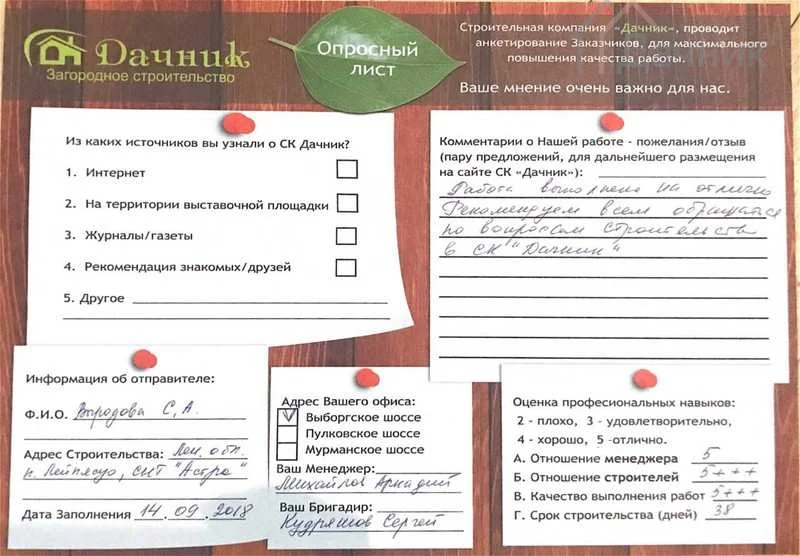 Дачник
Загородное строительство
Опросный
лист
Строительная компания «Дачник», проводит
анкетирование Заказчиков, для максимального
повышения качества работы.
Ваше мнение очень важно для нас.
Дачник
Из каких источников вы узнали о СК Дачник?
1. Интернет
2. На территории выставочной площадки
3. Журналы/газеты
4. Рекомендация знакомых/друзей
5. Другое
Комментарии о Нашей работе - пожелания/отзыв
(пару предложений, для дальнейшего размещения
на сайте СК «Дачник»):
Работа выполнена на отлично
Рекомендуем всем обращаться
по вопросам строительства
в СК "Дачник"
Информация об отправителе:
Ф.И.О. С.А.
Адрес Строительства: Лен. обл.
п. Лейпясуо, СНТ "Астра"
Дата Заполнения 14 . 09 . 2018
Адрес Вашего офиса:
Выборгское шоссе
Пулковское шоссе
Мурманское шоссе
Ваш Менеджер:
Михайлов Аркадий
Ваш Бригадир:
Кудряшов Сергей
Оценка профессиональных навыков:
2 - плохо, 3 - удовлетворительно,
4 - хорошо, 5 -отлично.
А. Отношение менеджера 5
Б. Отношение строителей 5+++
В. Качество выполнения работ 5+++
Г. Срок строительства (дней) 38